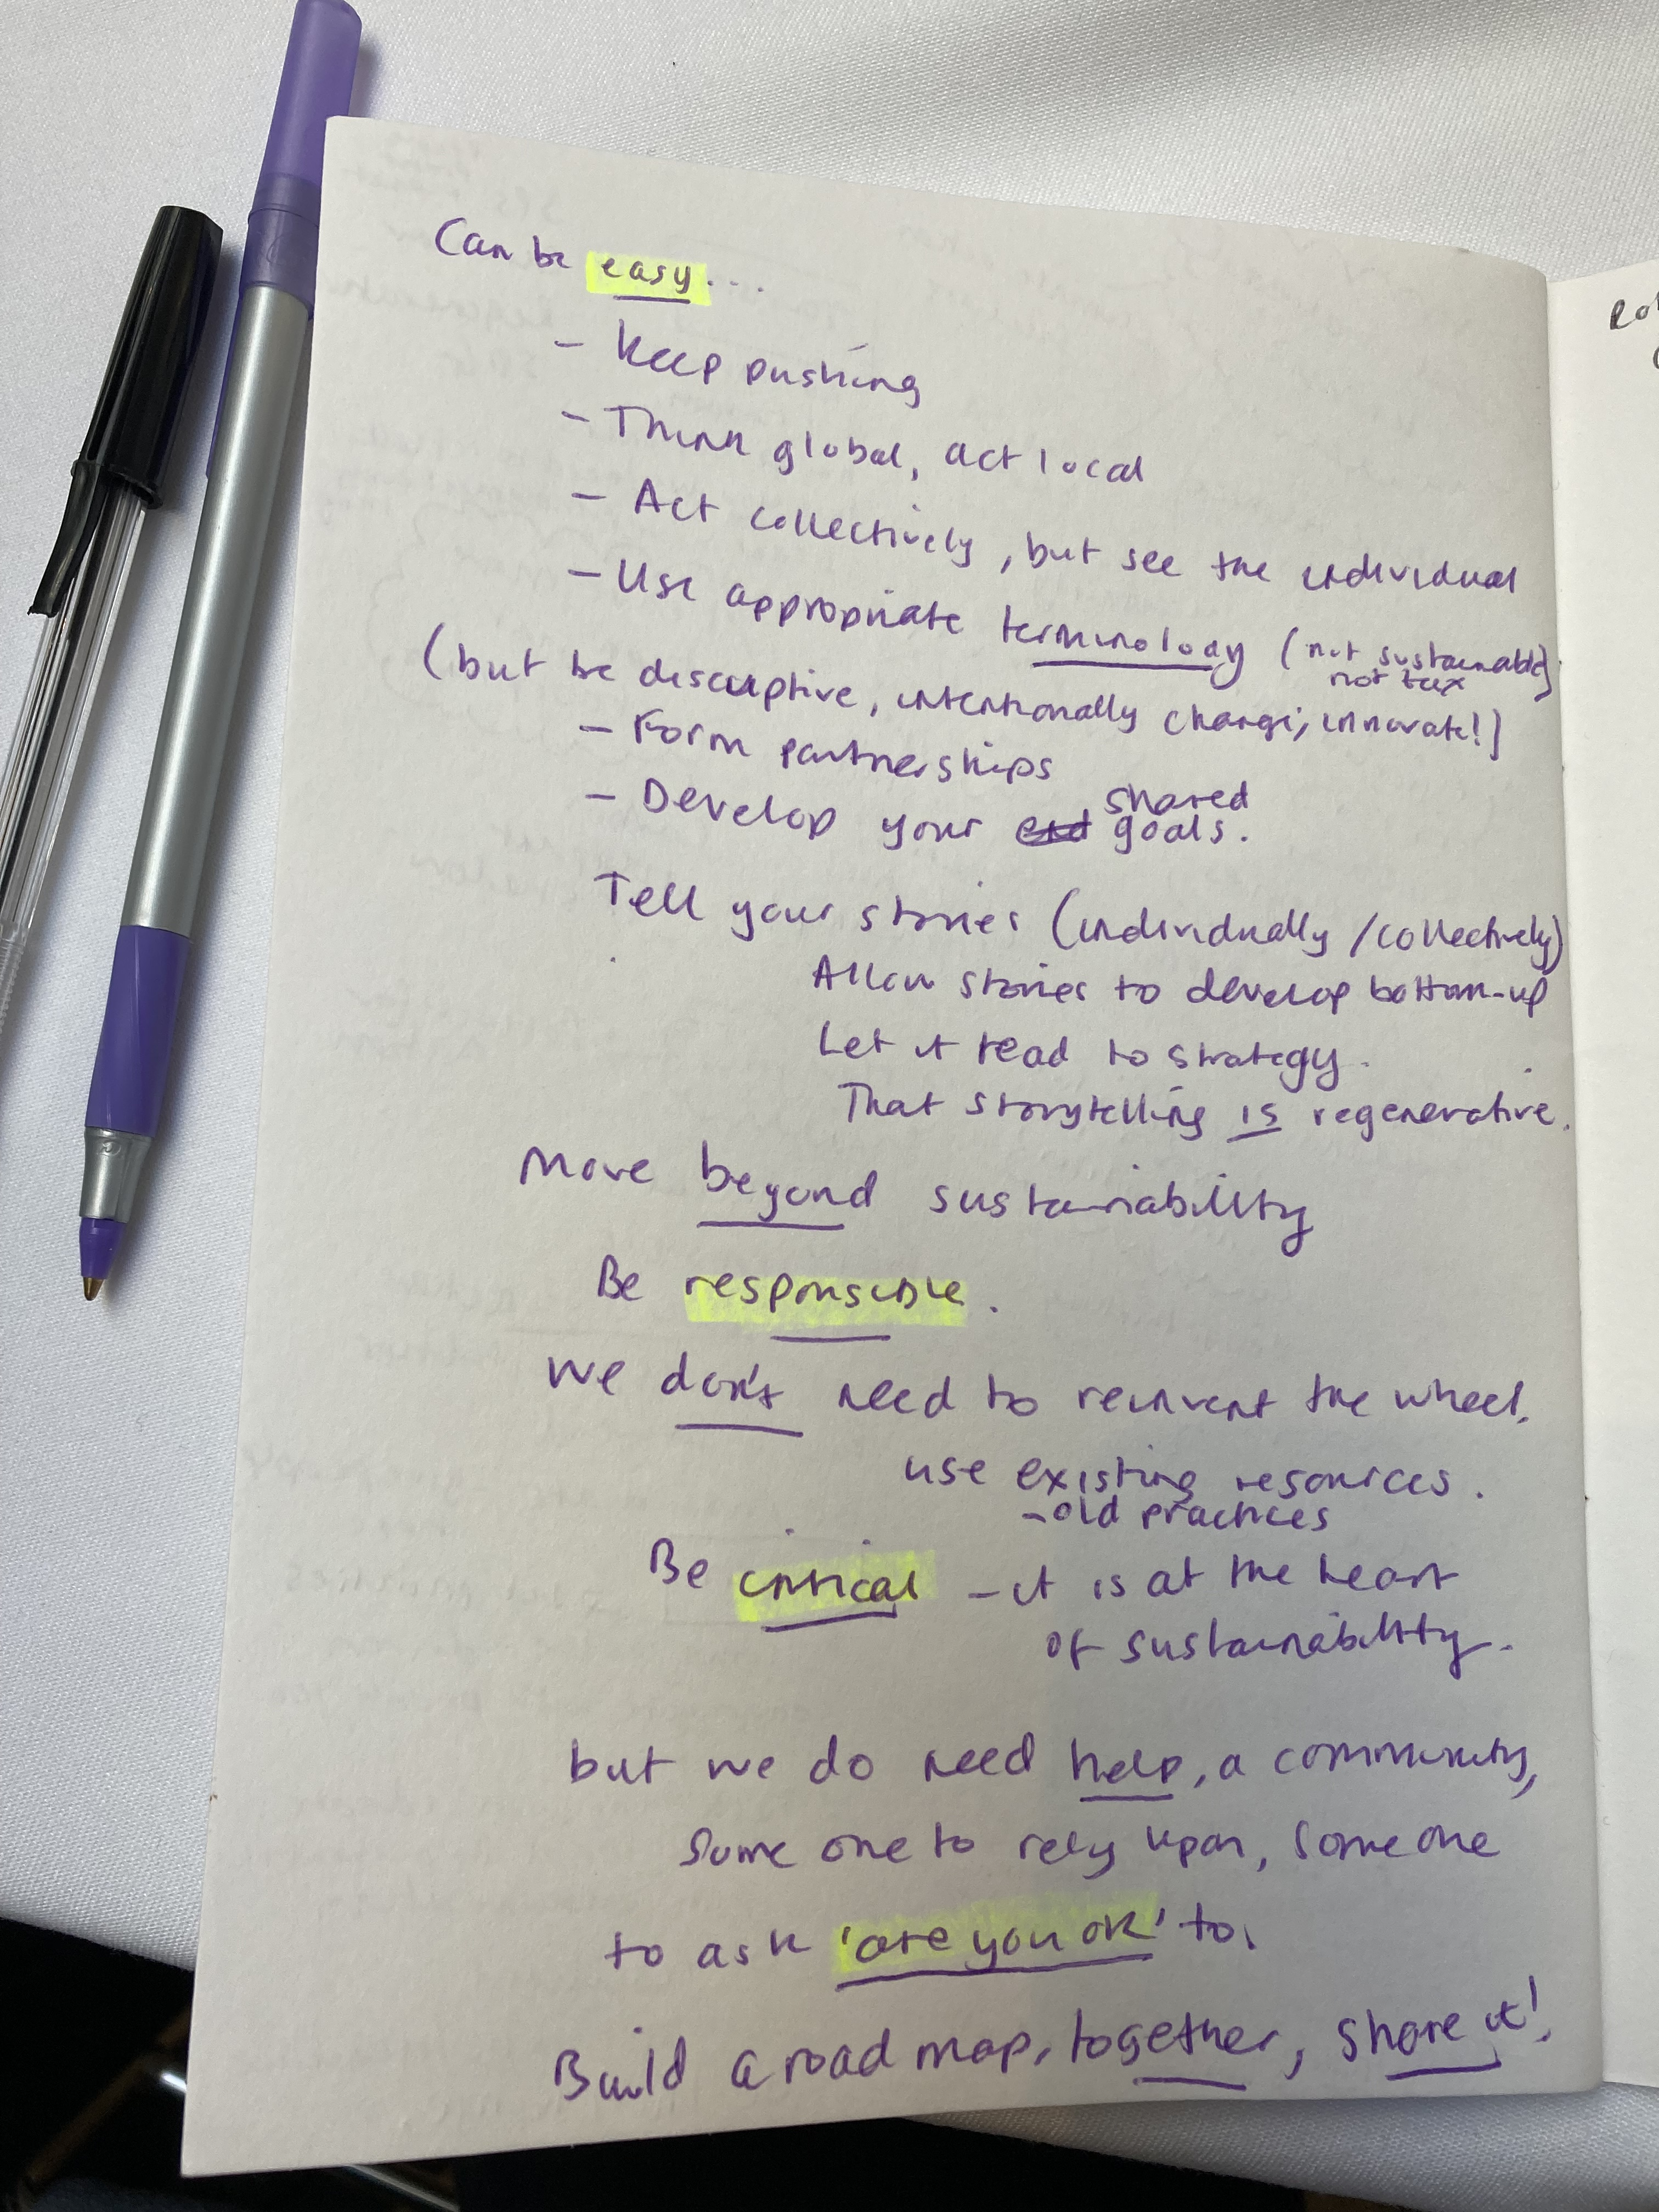 Can be easy...
- Keep pushing
- Think global, act local
- Act collectively, but see the individual
- Use appropriate terminology (not sustainable,
not tax)
(but be disruptive, intentionally change, innovate!)
- Form partnerships
- Develop your shared
goals.
Tell your stories (individually / collectively)
Allow stories to develop bottom-up
Let it lead to strategy.
That storytelling is regenerative.
Move beyond sustainability
Be responsible.
We don't need to reinvent the wheel,
use existing resources.
- old practices
Be critical - it is at the heart
of sustainability.
but we do need help, a community,
some one to rely upon, someone
to ask 'are you ok' to.
Build a road map, together, share it!